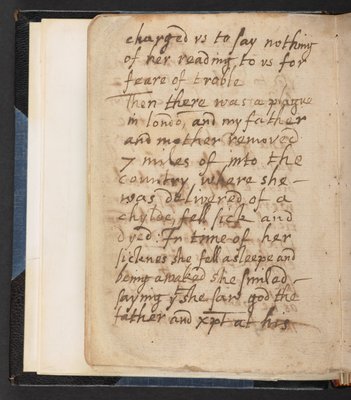 charged vs to say nothing
of her reading to vs for
feare of troble
Then there was a plague
in londō, and my father
and mother removed
7 miles of, into the
country where she
was delivered of a
chylde, fell sick and
dyed. In time of her
sicknes she fell a sleepe and
being awaked she smiled
saying yt she saw god the
father and xpt at his